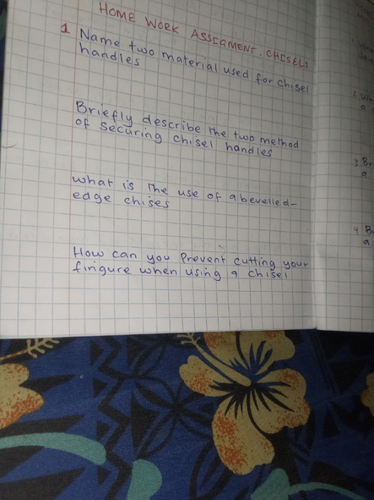 HOME WORK ASSIGMENT. CHISELS
1 Name two material used for chisel
handles
Briefly describe the two method
of securing chisel handles
what is the use of a bevelled-
edge chises
How can you prevent cutting your
fingure when using a chisel
3. Br
a
4. Br
a